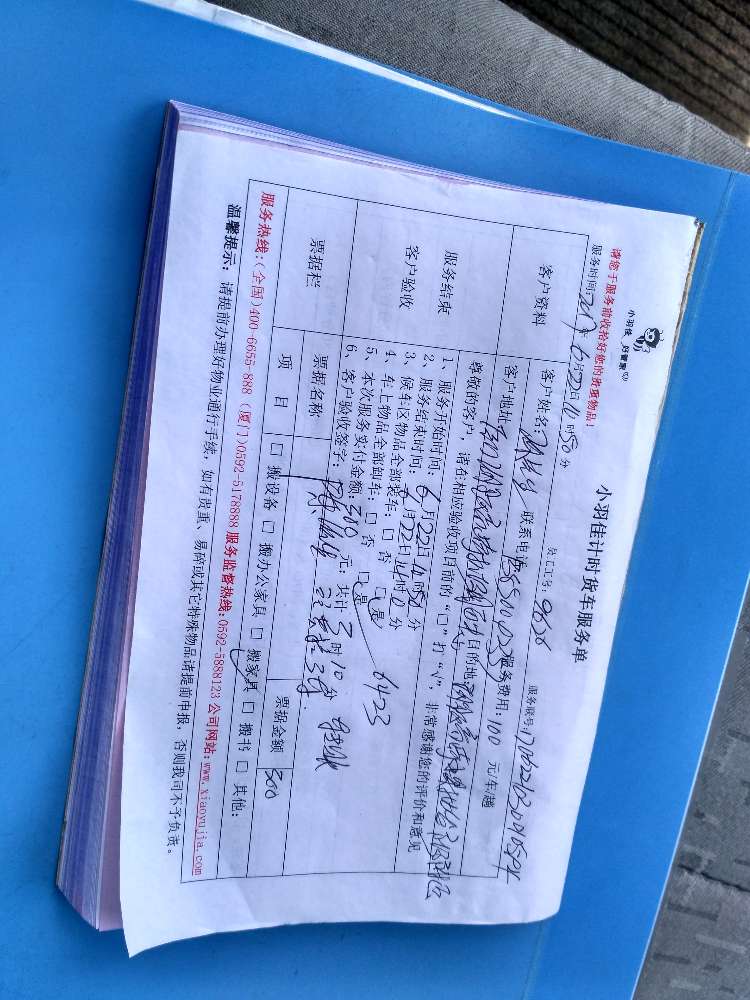 小羽佳 好管家
小羽佳计时货车服务单
请您于服务前收拾好您的贵重物品!
服务时间: 2017年6月22日10时50分 员工工号: 9636 服务账号:
客户资料
客户姓名: 联系电话: 服务费用: 100 元/车/趟
客户地址: 目的地:
服务结束
客户验收
尊敬的客户,请在相应验收项目前的“□”打“√”,非常感谢您的评价和意见
1、服务开始时间: 6月22日10时50分
2、服务结束时间: 6月22日14时0分
3、候车区物品全部装车: □ 否 □ 是
4、车上物品全部卸车: □ 否 □ 是 6423
5、本次服务实付金额: 300 元: 共计 3 时 10 分
6、客户验收签字:
票据栏
票据名称 票据金额 300
项 目 □ 搬设备 □ 搬办公家具 □ 搬家具 □ 搬书 □ 其他:
服务热线:(全国)400-6655-888 (厦门)0592-5178888 服务监督热线:0592-5888123 公司网站:www.xiaoyujia.com
温馨提示: 请提前办理好物业通行手续,如有贵重、易碎或其它特殊物品请提前申报,否则我司不予负责。